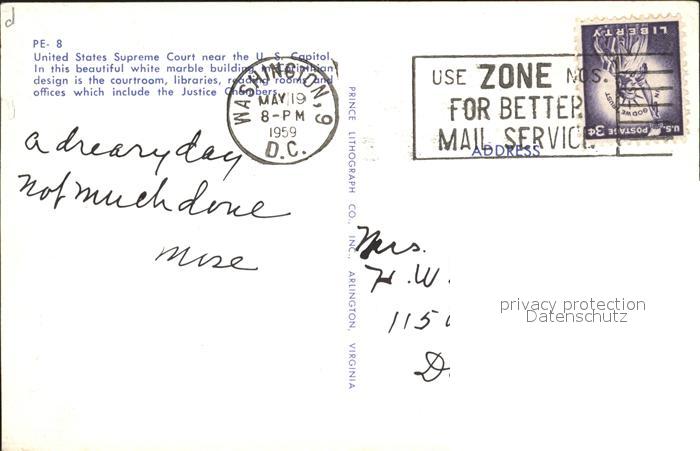 d
PE- 8
United States Supreme Court near the U. S. Capitol.
In this beautiful white marble building in Corinthian
design is the courtroom, libraries, reading rooms and
offices which include the Justice Chambers.
WASHINGTON, 9
MAY 19
8-PM
1959
D.C.
USE ZONE NOS.
FOR BETTER
MAIL SERVICE
LIBERTY
IN GOD WE TRUST
U.S. POSTAGE 3¢
a dreary day
not much done
PRINCE LITHOGRAPH CO., INC., ARLINGTON, VIRGINIA
ADDRESS
Mrs.
H. W.
115
D.
privacy protection
Datenschutz